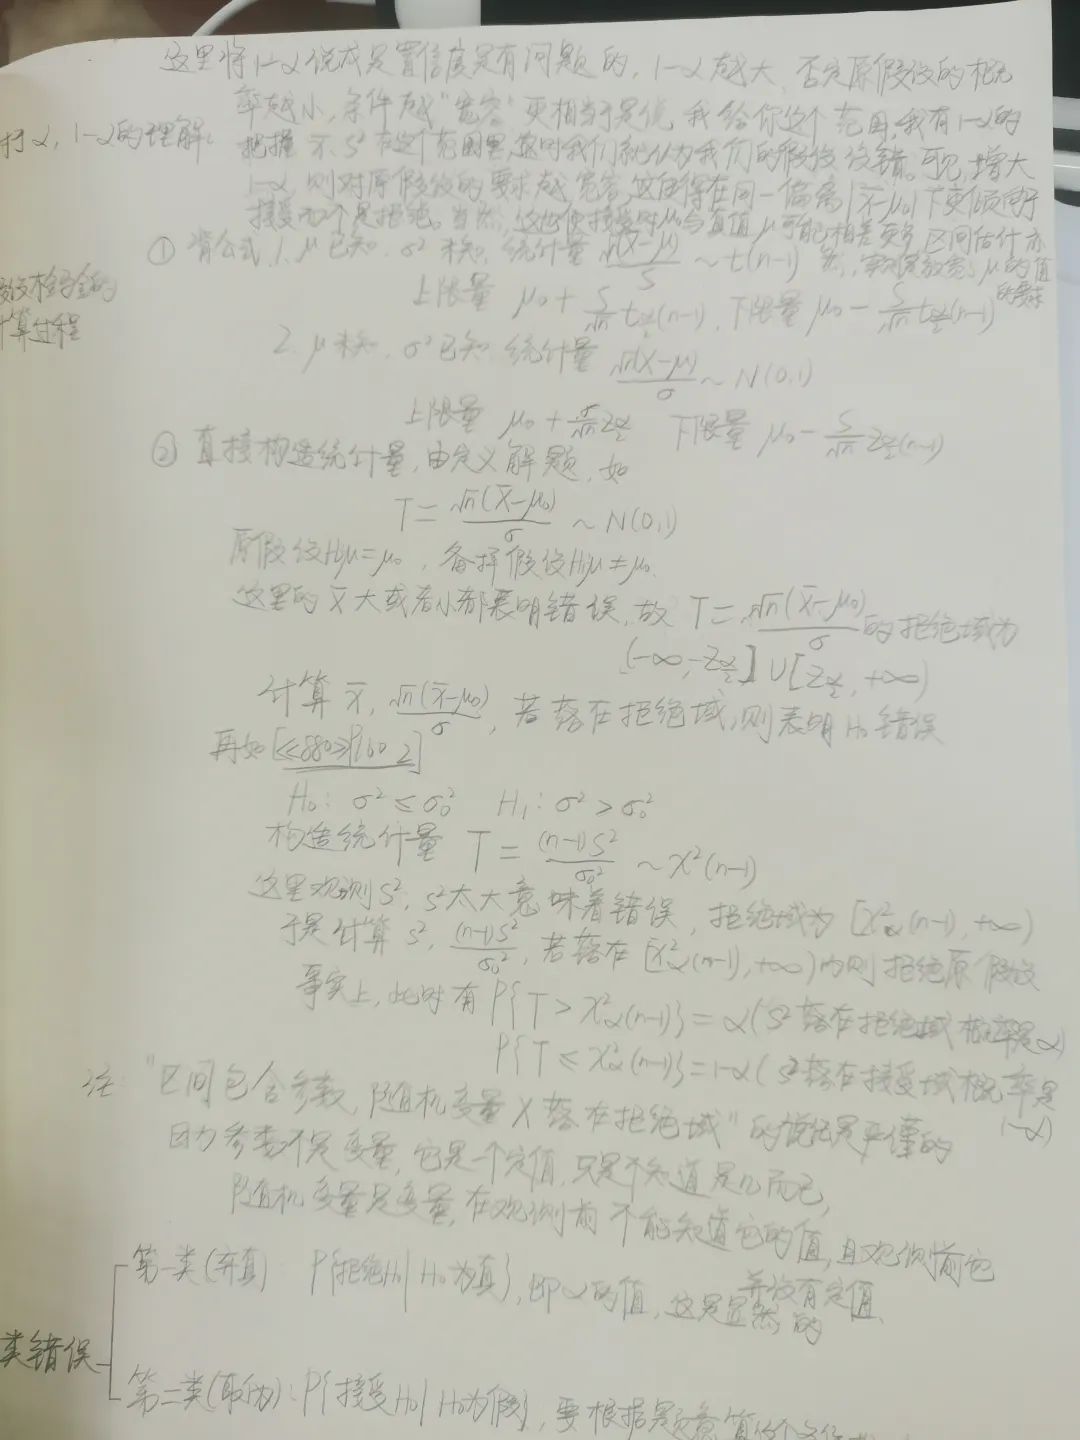 这里将1-α说成是置信度是有问题的，1-α越大，否定原假设的概
率越小，条件越"宽容"更相当于是说，我给你这个范围，我有1-α的
对α，1-α的理解：
把握 x̄、S²在这个范围里，这时我们就认为我们的假设没错。可见，增大
1-α，则对原假设的要求越宽容，这使得在同一偏离|x̄-μ₀|下更倾向于
接受而不是拒绝。当然，这也使接受时μ₀与真值μ可能相差更多，区间估计亦
① 背公式 1. μ已知，σ²未知，统计量 √n(X̄-μ)/S ~ t(n-1) 放宽了μ的值
的要求
假设检验的
计算过程
上限量 μ₀+S/√n t_{α/2}(n-1)，下限量 μ₀-S/√n t_{α/2}(n-1)
2. μ未知，σ²已知，统计量 √n(X-μ)/σ ~ N(0,1)
上限量 μ₀+σ/√n Z_{α/2} 下限量 μ₀-S/√n Z_{α/2}(n-1)
② 直接构造统计量，由定义解题，如
T=√n(X̄-μ₀)/σ ~ N(0,1)
原假设H₀μ=μ₀，备择假设H₁μ≠μ₀.
这里的x̄大或者小都表明错误，故 T=√n(x̄-μ₀)/σ的拒绝域为
(-∞,-Z_{α/2}]∪[Z_{α/2},+∞)
计算x̄，√n(x̄-μ₀)/σ，若落在拒绝域，则表明H₀错误
再如[≪880≫P160 2]
H₀：σ²≤σ₀² H₁：σ²>σ₀²
构造统计量 T=(n-1)S²/σ₀² ~ χ²(n-1)
这里观测S²，S²太大意味着错误，拒绝域为[χ²_α(n-1),+∞)
于是计算S²，(n-1)S²/σ₀²，若落在[χ²_α(n-1),+∞)内则拒绝原假设
事实上，此时有P{T>χ²_α(n-1)}=α(S²落在拒绝域概率是α)
P{T≤χ²_α(n-1)}=1-α(S²落在接受域概率是
1-α)
注："区间包含参数，随机变量X落在拒绝域"的说法是严谨的
因为参数不是变量，它是一个定值，只是不知道是几而已，
随机变量是变量，在观测前不能知道它的值，且观测前它
并没有定值.
第一类(弃真)：P{拒绝H₀|H₀为真}，即α的值，这是显然的
类错误
第二类(取伪)：P{接受H₀|H₀为假}，要根据题意算